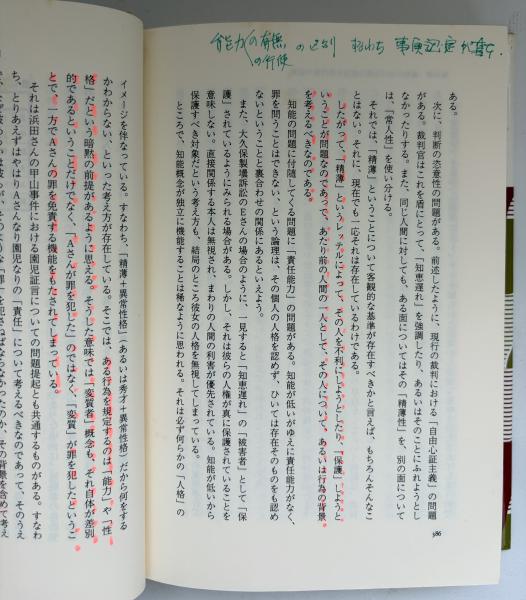 能力の有無 のとなり すなわち 事実認定
の行使
ある。
次に、判断の恣意性の問題がある。前述したように、現行の裁判における「自由心証主義」の問題
がある。裁判官はこれを盾にとって、「知恵遅れ」を強調したり、あるいはそのことにふれようとし
なかったりする。また、同じ人間に対しても、ある面についてはその「精薄性」を、別の面について
は、「常人性」を使い分ける。
それでは、「精薄」ということについて客観的な基準が存在すべきかと言えば、もちろんそんなこ
とはない。それに、現在でも一応それは存在しているわけである。
したがって、「精薄」というレッテルによって、その人を不利にしようとしたり、「保護」しようと
いうことが問題なのであって、あたり前の人間の一人として、その人について、あるいは行為の背景
を考えるべきなのである。
知能の問題に付随してくる問題に「責任能力」の問題がある。知能が低いがゆえに責任能力がなく、
罪を問うことはできない、という論理は、その個人の人格を認めず、ひいては存在そのものをも認め
ないということと裏合わせの関係にあるといえよう。
また、大久保製壜訴訟のEさんの場合のように、一見すると「知恵遅れ」の「被害者」として「保
護」されているようにみられる場合がある。しかし、それは彼らの人権が真に保護されていることを
意味しない。直接関係する本人は無視され、まわりの人間の利害が優先されている。知能が低いから
保護すべき対象だという考え方も、結局のところ彼女の人格を無視してしまっている。
ところで、知能概念が独立に機能することは稀なように思われる。それは必ず何らかの「人格」の
イメージを伴なっている。すなわち、「精薄+異常性格」(あるいは秀才+異常性格)だから何をする
かわからない、といった考え方が存在している。そこでは、ある行為を規定するのは「能力」や「性
格」だという暗黙の前提があるように思える。そうした意味では、「変質者」概念も、それ自体が差別
的であるということだけでなく、「Aさんが罪を犯した」のではなく、「変質」が罪を犯したというこ
とで、一方でAさんの罪を免責する機能をもたされてしまっている。
それは浜田さんの甲山事件における園児証言についての問題提起とも共通するものがある。すなわ
ち、とりあえずはやはりAさんなり園児なりの「責任」について考えるべきなのであって、そのうえ
「罪を犯さねばならなかったのか、その背景を含めて考え
386